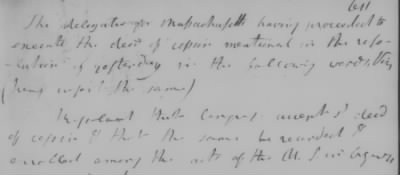 611
The delegates of Massachusetts having proceeded to
execute the deed of cession mentioned in the reso-
-lution of yesterday in the following words,
(here insert the same)
Resolved that Congress accept sd deed
of cession & that the same be recorded &
enrolled among the acts of the U. S. in Congress